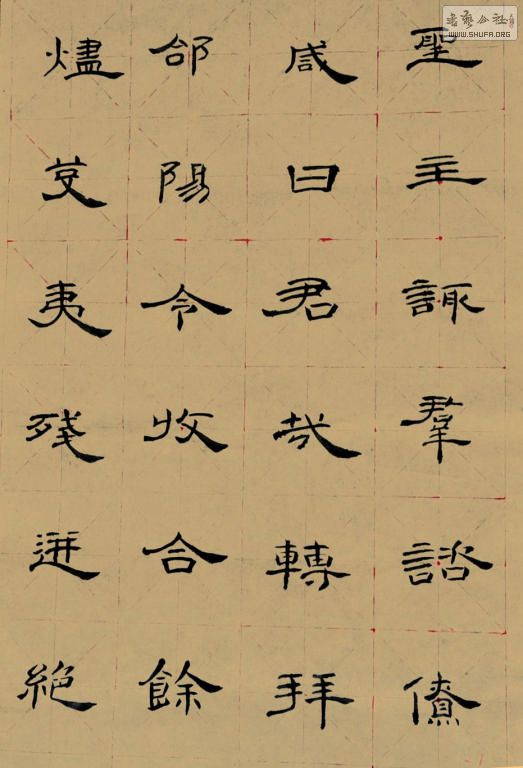 聖主諏羣諮僚
咸曰君哉轉拜
郃陽令收合餘
燼芟夷殘迸絕
書藝公社
WWW.SHUFA.ORG